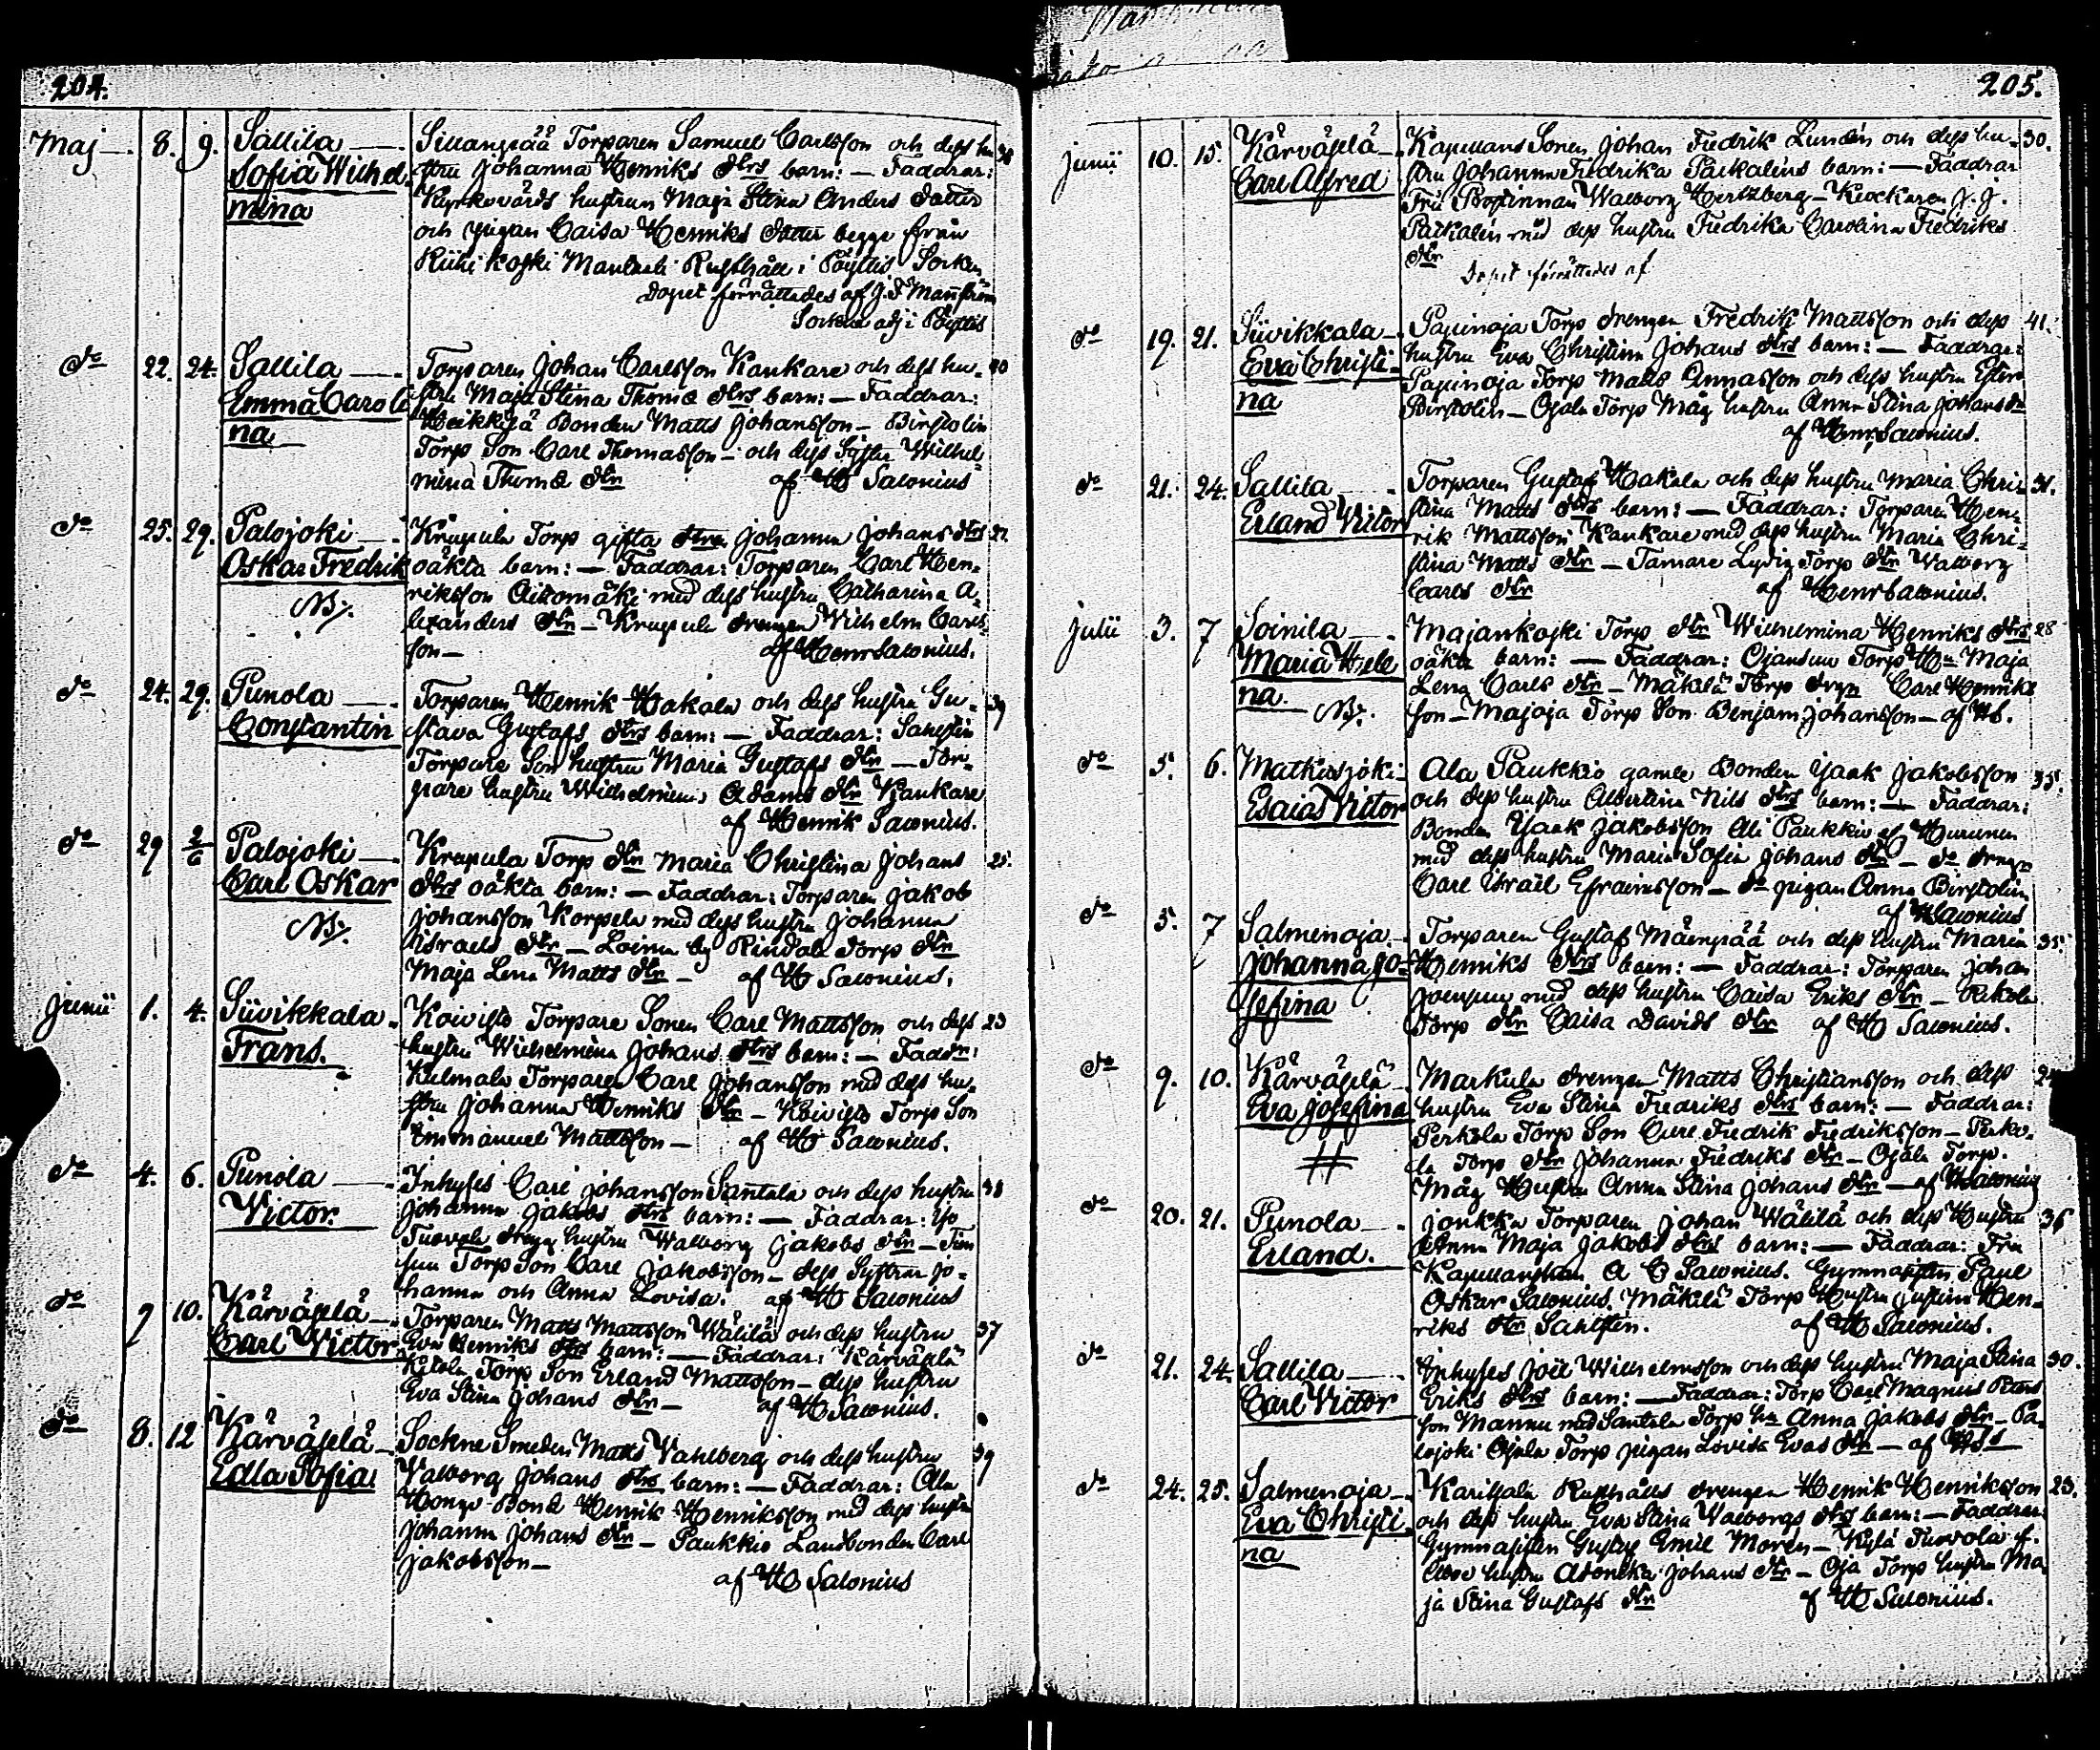 204.
Maj 8. 9. Sallila Sillanpää Torparen Samuel Carlsson och dess hu
Sofia Wilhel- stru Johanna Henriks dtrs barn: — Faddrar:
mina Kyrkovärds hustrun Maja Stina Anders dotter
och pigan Caisa Henriks dotter begge från
Riihikoski Manbeli Rusthåll i Pöytis Socken
Dopet förrättades af J. F. Manström
Sockne adj i Pöytis
do 22. 24. Sallila Torparen Johan Carlsson Kankare och dess hu- 40
Emma Caroli stru Maja Stina Thomæ dtrs barn: — Faddrar:
na Heikkilä Bonden Matts Johansson — Birstolin
Torp Son Carl Thomasson — och dess Syster Wilhel-
mina Thomæ dtr af H Salonius
do 25. 29. Palojoki Krapula Torp gifta dtrn Johanna Johans dtrs 27.
Oskar Fredrik oäkta barn: — Faddrar: Torparen Carl Hen-
NB. riksson Aitomäki med dess hustru Catharina A-
lexanders dtr — Krapula drengen Wilhelm Carls-
son — af Henr Salonius.
do 24. 29. Punola Torparen Henrik Hakala och dess hustru Gu- 39
Constantin stava Gustafs dtrs barn: — Faddrar: Sahlstén
Torpare Son hustru Maria Gustafs dtr — Tor-
pare hustru Wilhelmina Adams dtr Kankare
af Henrik Salonius.
do 29 2/6 Palojoki Krapula Torp dtr Maria Christina Johans 25.
Carl Oskar dtrs oäkta barn: — Faddrar: Torparen Jakob
NB. Johansson Korpela med dess hustru Johanna
Israels dtr — Loima by Rindala Torp dtr
Maja Lena Matts dtr — af H Salonius.
Junii 1. 4. Siivikkala Koivisto Torpare Sonen Carl Mattsson och dess 23
Frans. hustru Wilhelmina Johans dtrs barn: — Faddr:
Kulmala Torparen Carl Johansson med dess hu-
stru Johanna Henriks dtr — Koivisto Torp Son
Emmanuel Mattsson — af H Salonius.
do 4. 6. Punola Inhyses Carl Johansson Santala och dess hustru 38
Victor. Johanna Jakobs dtrs barn: — Faddrar: Yso
Tuovola drengs hustru Walborg Jakobs dtr —
Torp Son Carl Jakobsson — dess Systrar Jo-
hanna och Anna Lovisa. af H Salonius
do 7 10. Kärväpelä Torparen Matts Mattsson Wälilä och dess hustru 37
Carl Victor Eva Henriks dtrs barn: — Faddrar: Kärväpelä
Kitola Torp Son Erland Mattsson — dess hustru
Eva Stina Johans dtr — af H Salonius.
do 8. 12 Kärväpelä Sockne Smeden Matts Wahlberg och dess hustru 39
Edla Sofia. Walborg Johans dtrs barn: — Faddrar: Ala
Hongo Bond Henrik Henriksson med dess hustru
Johanna Johans dtr — Paukkio Landbonden Carl
Jakobsson —
af H Salonius
205.
Junii 10. 15. Kärväpelä Kapellans Sonen Johan Fredrik Lundén och dess hu- 30.
Carl Alfred stru Johanna Fredrika Päikaléns barn: — Faddrar
Fru Prostinnan Walborg Hertzberg — Klockaren J. J.
Päikalén med dess hustru Fredrika Carolina Fredriks
dtr
Dopet förrättades af
do 19. 21. Siivikkala Papinoja Torp drengen Fredrik Mattsson och dess 41.
Eva Christi- hustru Eva Christina Johans dtrs barn: — Faddrar:
na Papinoja Torp Matts Annasson och dess hustru Ester
Birstolin — Ojala Torp Måg hustru Anna Stina Johans dtr
af Henr Salonius.
do 21. 24. Sallila Torparen Gustaf Hakala och dess hustru Maria Chri- 31.
Erland Victor stina Matts dtrs barn: — Faddrar: Torparen Hen-
rik Mattsson Kankare med dess hustru Maria Chri-
stina Matts dtr — Tamare Torp dtr Walborg
Carls dtr af Henr Salonius.
Julii 3. 7 Soinila Majankoski Torp dtr Wilhelmina Henriks dtrs 28
Maria Hele oäkta barn: — Faddrar: Ojansuu Torp Hu Maja
na. NB. Lena Carls dtr — Mäkilä Torp drgn Carl Henriks
son — Majoja Torp Son Benjam Johansson — af HS.
do 5. 6. Matkusjoki Ala Paukkio gamle Bonden Isaak Jakobsson 55.
Esaias Victor och dess hustru Albertina Nils dtrs barn: — Faddrar:
Bonden Isaak Jakobsson Ali Paukkio af
med dess hustru Maria Sofia Johans dtr — do drengn
Carl Israel Efraimsson — do pigan Anna Birstolin
af H Salonius
do 5. 7 Salmenoja Torparen Gustaf Mäenpää och dess hustru Maria 35.
Johanna Jo- Henriks dtrs barn: — Faddrar: Torparen Johan
sefina Joensuu med dess hustru Caisa Eriks dtr — Rekola
Torp dtr Caisa Davids dtr af H Salonius.
do 9. 10. Kärväpelä Markula drengen Matts Christiansson och dess 24
Eva Josefina hustru Eva Stina Fredriks dtrs barn: — Faddrar:
# Perkola Torp Son Carl Fredrik Fredriksson — Perko-
la Torp dtr Johanna Fredriks dtr — Ojala Torp.
Måg Hustru Anna Stina Johans dtr — af H Salonius
do 20. 21. Punola Jonkka Torparen Johan Wälilä och dess Hustru 36
Erland. Anna Maja Jakobs dtrs barn: — Faddrar: Fru
Kapellanskan A C Salonius. Gymnasisten Paul
Oskar Salonius. Mäkilä Torp Hustru Justina Hen-
riks dtr Sahlstén. af H Salonius.
do 21. 24. Sallila Inhyses Joel Wilhelmsson och dess hustru Maja Stina 30.
Carl Victor Eriks dtrs barn: — Faddrar: Torp Carl Magnus
son Mannu med Santala Torp hu Anna Jakobs dtr — Pa-
lojoki Ojala Torp pigan Lovisa Evas dtr — af HSS
do 24. 25. Salmenoja Karihala Rusthålls drengen Henrik Henriksson 23.
Eva Christi och dess hustru Eva Stina Walborgs dtrs barn: — Faddrar:
na Gymnasisten Gustaf Emil Morén — Kylä Tuovola
hustru Adonika Johans dtr — Oja Torp hustru Ma
ja Stina Gustafs dtr af H Salonius.